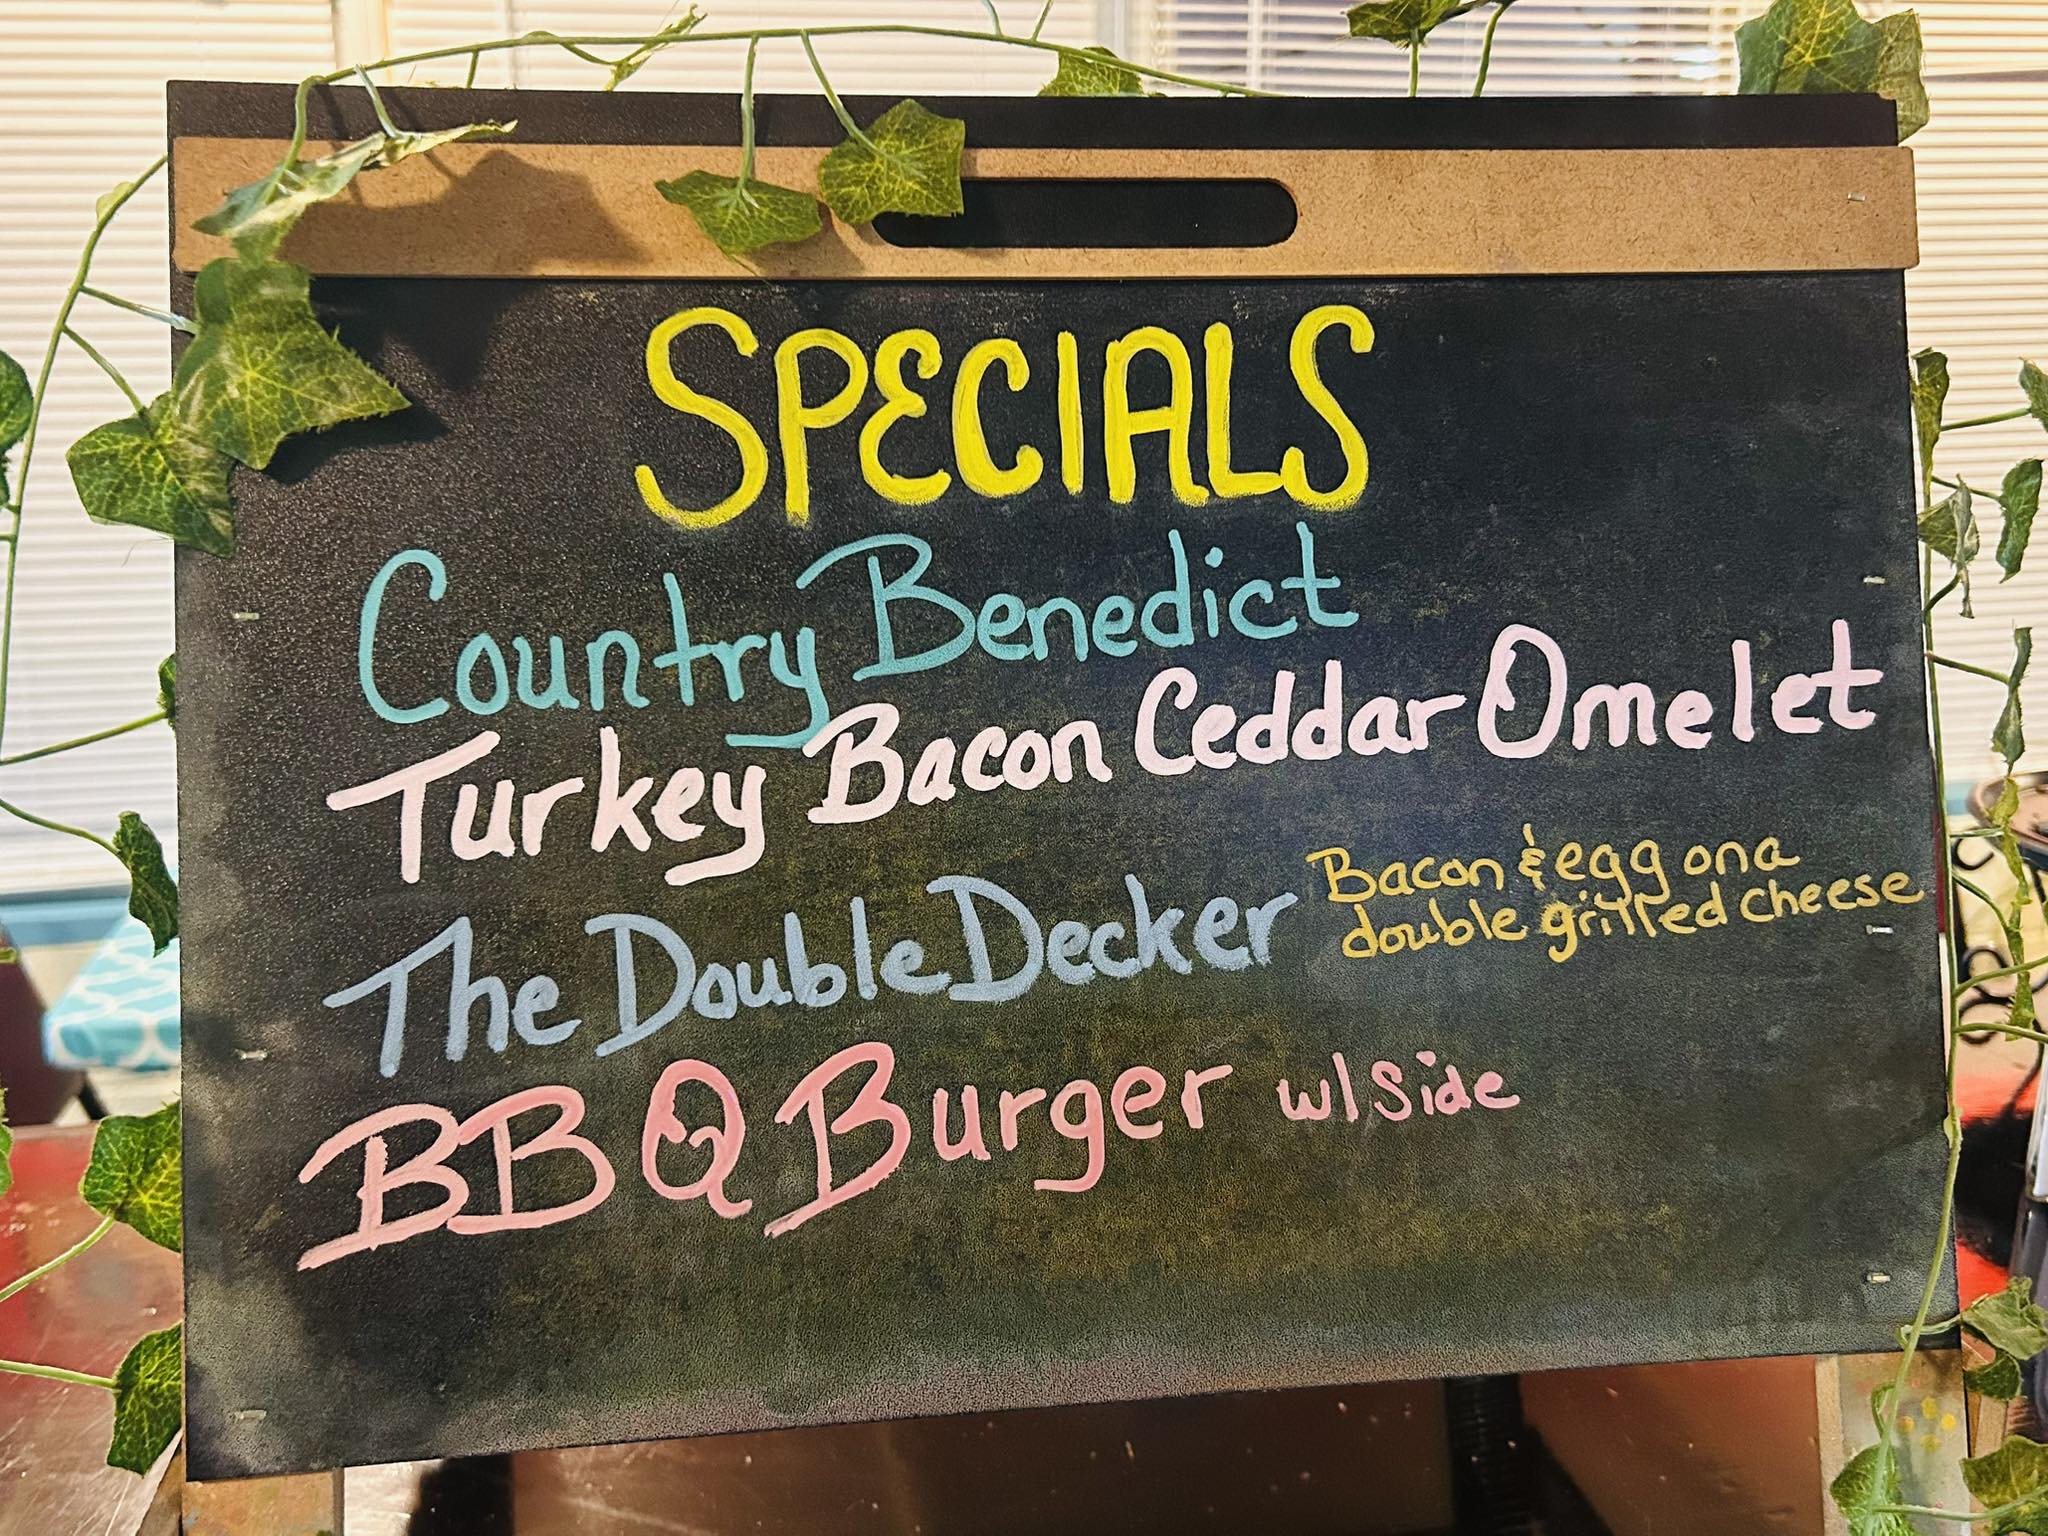 SPECIALS
Country Benedict
Turkey Bacon Ceddar Omelet
The Double Decker
Bacon & egg on a
double grilled cheese
BBQ Burger w/side